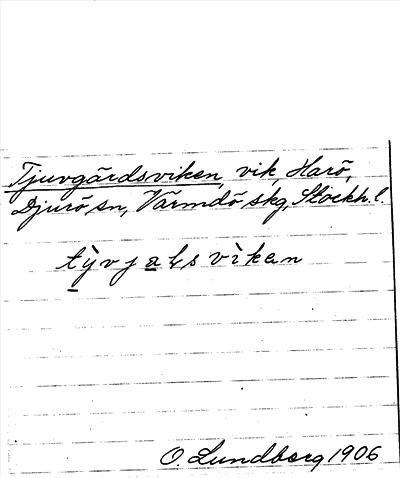 Tjuvgårdsviken, vik, Harö,
Djurö sn, Värmdö skg, Stockh. l.
tỳvjaḷs vìken
O. Lundberg 1906